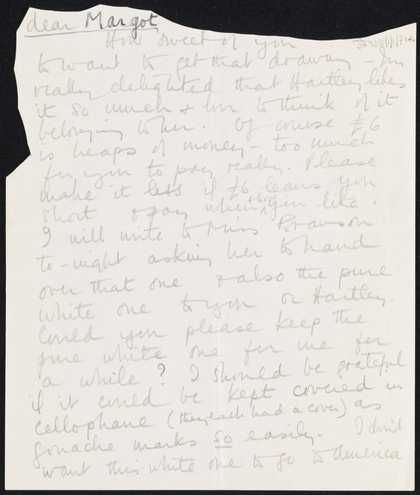 dear Margot,
How sweet of you
to want to get that drawing – I'm
really delighted that Hartley likes
it so much & love to think of it
belonging to her. Of course £6
is heaps of money – too much
for you to pay really. Please
make it less if £6 leaves you
short or pay whenever you like.
I will write to Miss
to-night asking her to hand
over that one & also the pure
white one to you or Hartley.
Could you please keep the
pure white one for me for
a while? I should be grateful
if it could be kept covered in
cellophane (they each had a cover) as
gouache marks so easily. I don't
want this white one to go to America